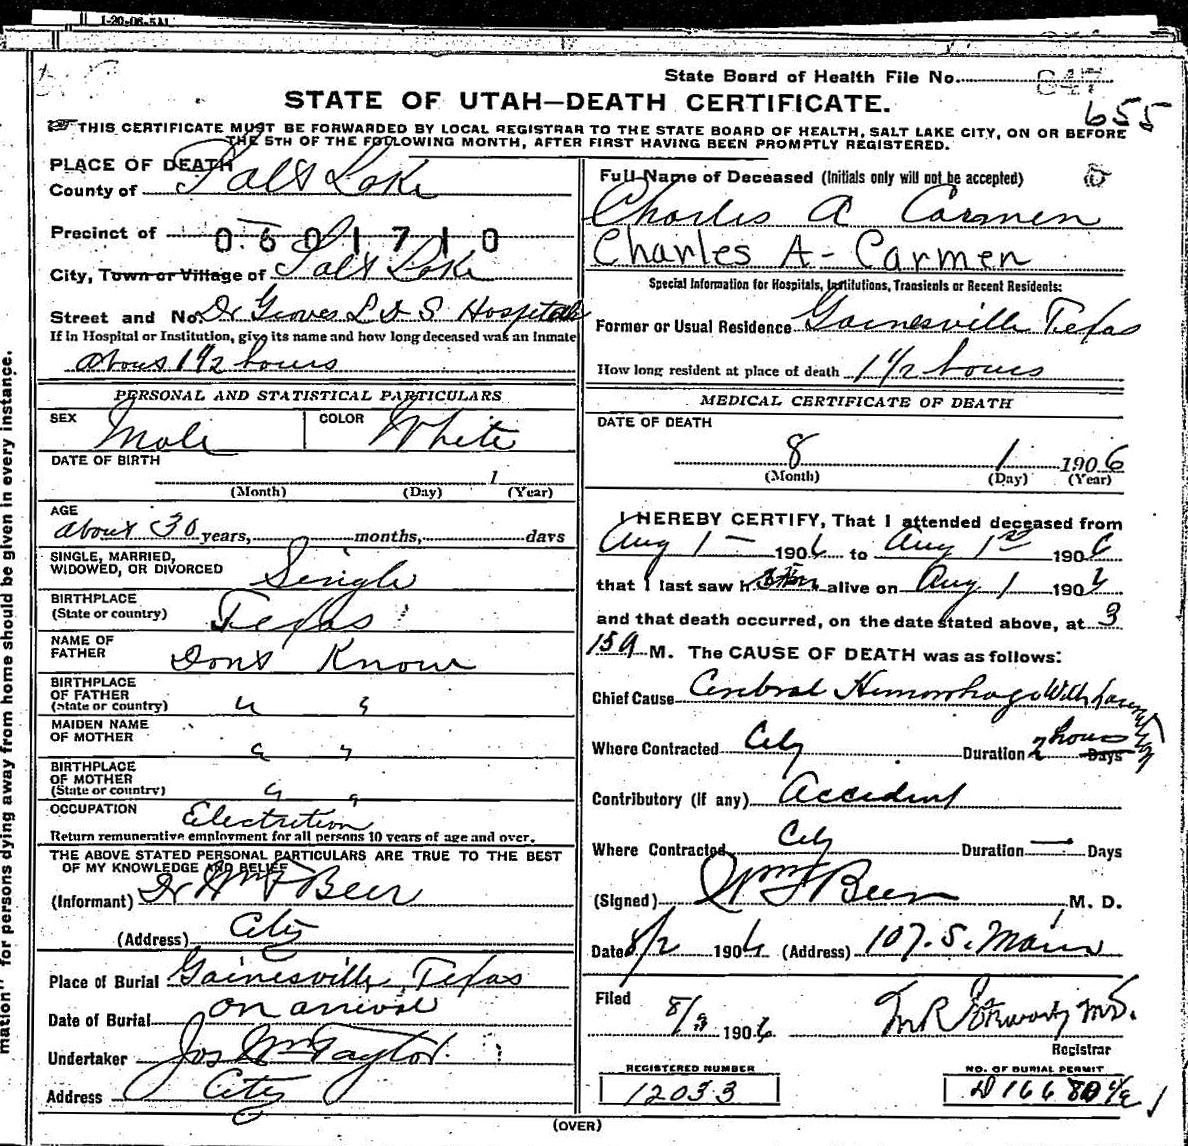 1-20-06-5M
State Board of Health File No. 847
655
STATE OF UTAH—DEATH CERTIFICATE.
THIS CERTIFICATE MUST BE FORWARDED BY LOCAL REGISTRAR TO THE STATE BOARD OF HEALTH, SALT LAKE CITY, ON OR BEFORE
THE 5TH OF THE FOLLOWING MONTH, AFTER FIRST HAVING BEEN PROMPTLY REGISTERED.
PLACE OF DEATH
County of Salt Lake
Precinct of 0601710
City, Town or Village of Salt Lake
Street and No. Dr Groves L D S Hospital
If in Hospital or Institution, give its name and how long deceased was an Inmate
about 1 1/2 hours
PERSONAL AND STATISTICAL PARTICULARS
SEX Male COLOR White
DATE OF BIRTH
1
(Month) (Day) (Year)
AGE
about 30 years, months, days
SINGLE, MARRIED,
WIDOWED, OR DIVORCED Single
BIRTHPLACE
(State or country) Texas
NAME OF
FATHER Dont Know
BIRTHPLACE
OF FATHER
(State or country) " "
MAIDEN NAME
OF MOTHER " "
BIRTHPLACE
OF MOTHER
(State or country) " "
OCCUPATION Electrition
Return remunerative employment for all persons 10 years of age and over.
THE ABOVE STATED PERSONAL PARTICULARS ARE TRUE TO THE BEST
OF MY KNOWLEDGE AND BELIEF
(Informant) Dr Wm F Beer
(Address) City
Place of Burial Gainesville, Texas
Date of Burial on arrival
Undertaker Jos Wm Taylor
Address City
Full Name of Deceased (Initials only will not be accepted)
Charles A Carmen
Charles A- Carmen
Special Information for Hospitals, Institutions, Transients or Recent Residents:
Former or Usual Residence Gainesville Texas
How long resident at place of death 1 1/2 hours
MEDICAL CERTIFICATE OF DEATH
DATE OF DEATH
8 1 1906
(Month) (Day) (Year)
I HEREBY CERTIFY, That I attended deceased from
Aug 1 — 1906 to Aug 1st 1906
that I last saw him alive on Aug 1 1906
and that death occurred, on the date stated above, at 3
15 a M. The CAUSE OF DEATH was as follows:
Chief Cause Cerebral Hemorrhage With
Where Contracted City Duration 2 hours Days
Contributory (if any) Accident
Where Contracted City Duration — Days
(Signed) Wm F Beer M. D.
Date 8/2 1906 (Address) 107. S. Main
Filed
8/3 1906 M.D.
Registrar
REGISTERED NUMBER
12033
NO. OF BURIAL PERMIT
D16680
(OVER)
mation" for persons dying away from home should be given in every instance.